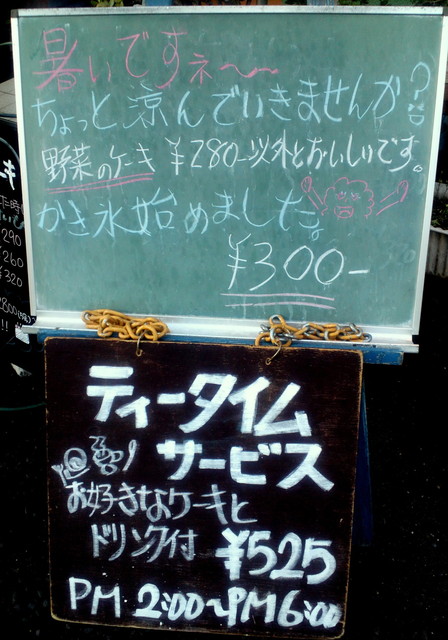 暑いですネ〜〜
ちょっと涼んでいきませんか?
野菜のケーキ ¥280-以外とおいしいです。
かき氷始めました。
¥300-
ティータイム
サービス
お好きなケーキと
ドリンク付 ¥525
PM 2:00〜PM6:00
290
260
320